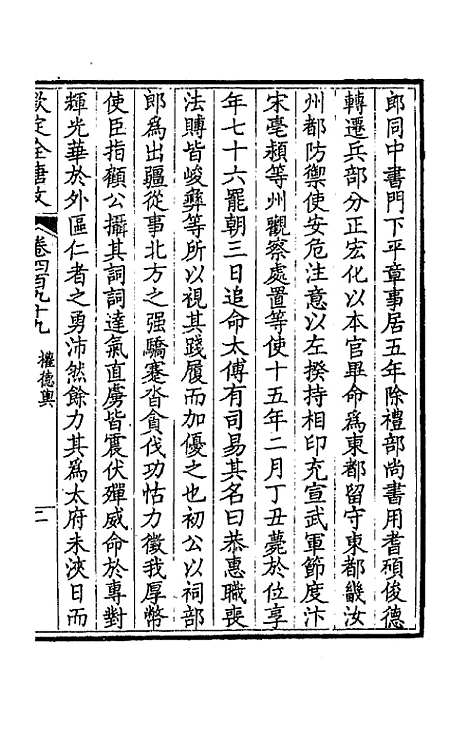 郎同中書門下平章事居五年除禮部尚書用耆碩俊德
轉遷兵部分正宏化以本官畢命爲東都留守東都畿汝
州都防禦使安危注意以左揆持相印充宣武軍節度汴
宋亳潁等州觀察處置等使十五年二月丁丑薨於位享
年七十六罷朝三日追命太傅有司易其名曰恭惠職喪
法賻皆峻彝等所以視其踐履而加優之也初公以祠部
郎爲出疆從事北方之强驕蹇沓貪伐功怙力徵我厚幣
使臣指顧公攝其詞詞達氣直虜皆震伏殫威命於專對
輝光華於外區仁者之勇沛然餘力其爲太府未浹日而
欽定全唐文
卷四百九十九
權德輿
二